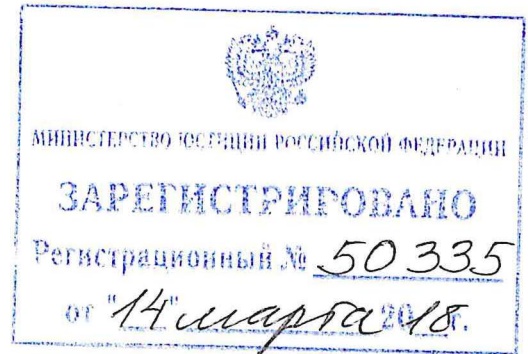 МИНИСТЕРСТВО ЮСТИЦИИ РОССИЙСКОЙ ФЕДЕРАЦИИ
ЗАРЕГИСТРИРОВАНО
Регистрационный № 50335
от "14" марта 2018г.